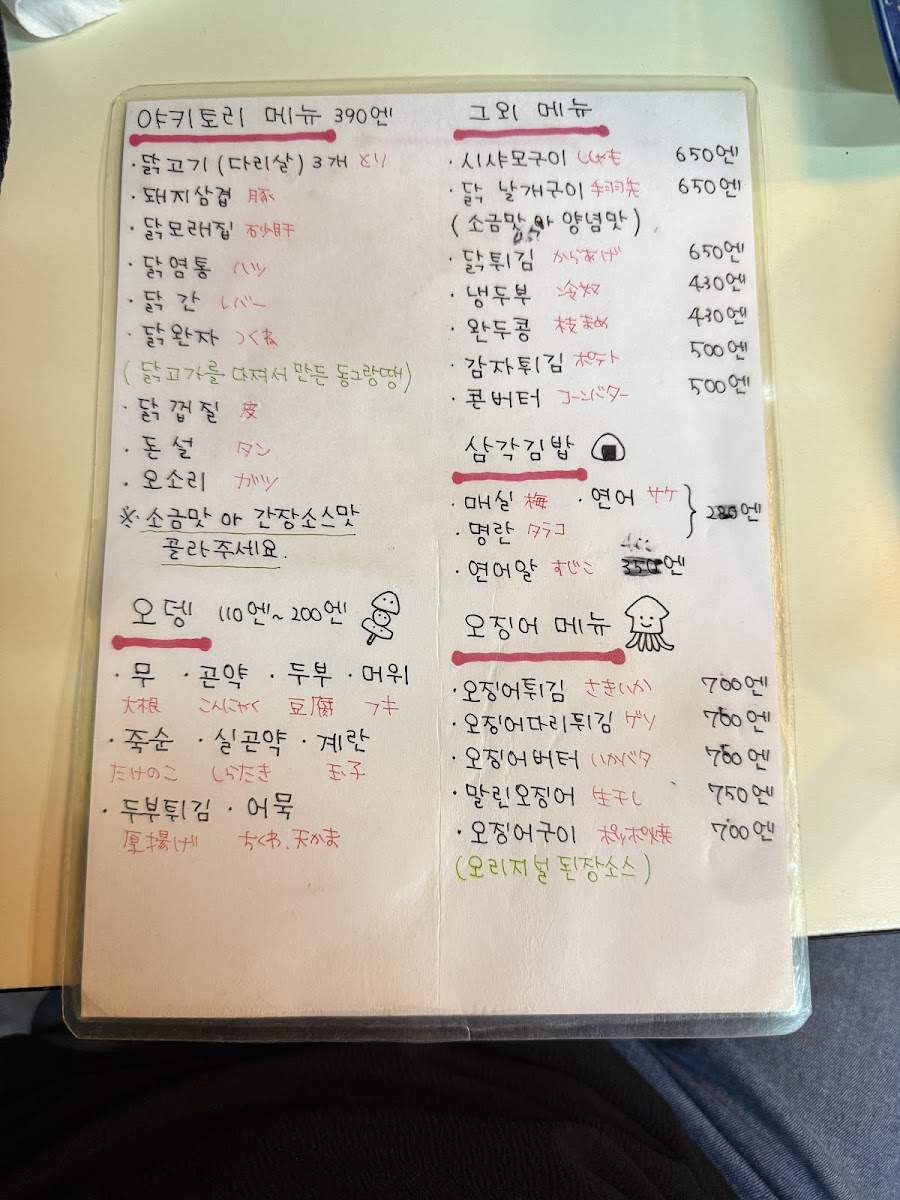 야키토리 메뉴 390엔
· 닭고기 (다리살) 3개 とり
· 돼지삼겹 豚
· 닭모래집 砂肝
· 닭염통 ハツ
· 닭 간 レバー
· 닭완자 つくね
(닭고가를 다져서 만든 동그랑땡)
· 닭껍질 皮
· 돈설 タン
· 오소리 ガツ
※ 소금맛 아 간장소스맛
골라주세요.
오뎅 110엔~200엔
· 무 · 곤약 · 두부 · 머위
大根 こんにゃく 豆腐 フキ
· 죽순 · 실곤약 · 계란
たけのこ しらたき 玉子
· 두부튀김 · 어묵
厚揚げ ちくわ、天かま
그외 메뉴
· 시샤모구이 ししゃも 650엔
· 닭 날개구이 手羽先 650엔
(소금맛 아 양념맛)
· 닭튀김 からあげ 650엔
· 냉두부 冷奴 430엔
· 완두콩 枝まめ 430엔
· 감자튀김 ポテト 500엔
· 콘버터 コーンバター 500엔
삼각김밥
· 매실 梅 · 연어 サケ
· 명란 タラコ
엔
· 연어알 すじこ 엔
오징어 메뉴
· 오징어튀김 さきいか 700엔
· 오징어다리튀김 ゲソ 700엔
· 오징어버터 いかバタ 700엔
· 말린오징어 生干し 750엔
· 오징어구이 ポッポ焼 700엔
(오리지널 된장소스)